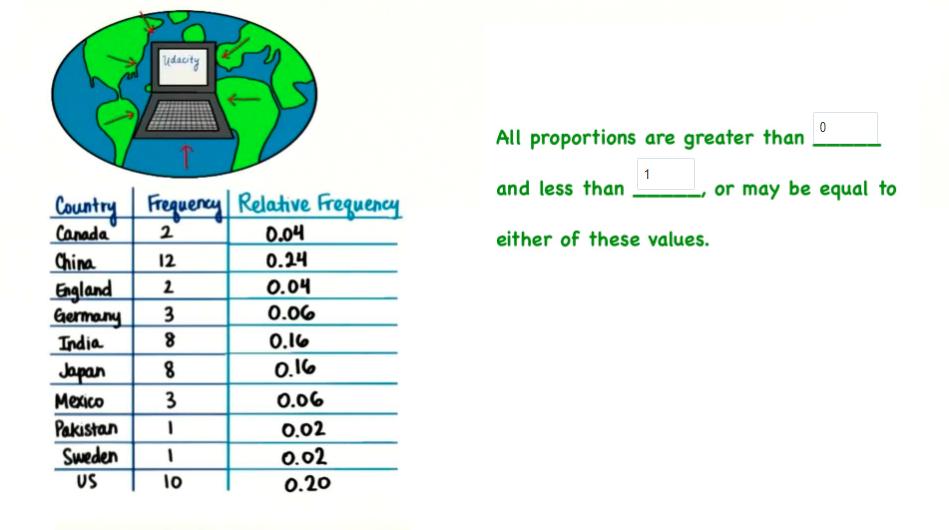 Udacity
Country Frequency Relative Frequency
Canada 2 0.04
China 12 0.24
England 2 0.04
Germany 3 0.06
India 8 0.16
Japan 8 0.16
Mexico 3 0.06
Pakistan 1 0.02
Sweden 1 0.02
US 10 0.20
All proportions are greater than 0
and less than 1, or may be equal to
either of these values.